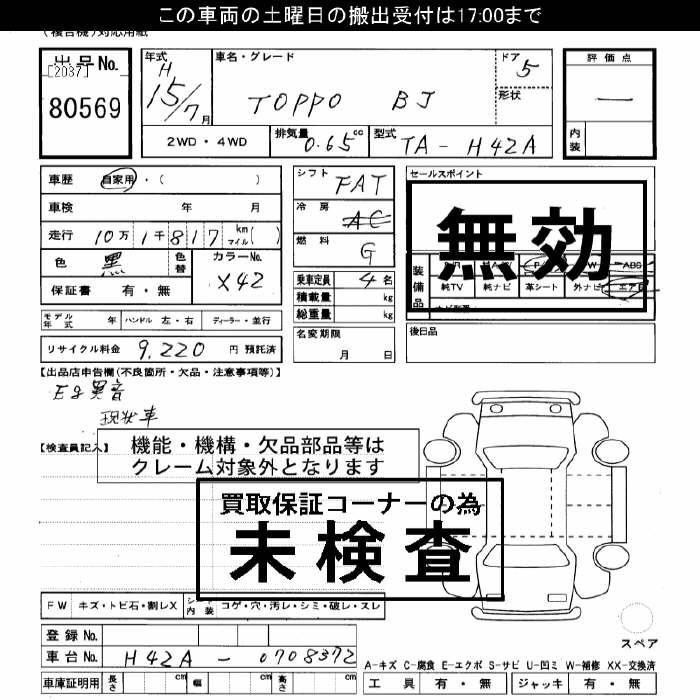 この車両の土曜日の搬出受付は17:00まで
(複合機)対応用紙
出品No. [2037] 80569
年式 H 15/7月
車名・グレード TOPPO BJ
ドア 5
形状
評価点 —
内装
2WD・4WD
排気量 0.65cc
型式 TA-H42A
車歴 自家用・( )
車検 年 月
走行 10万1千817 km マイル( )
色 黒 色替 カラーNo. X42
保証書 有・無
シフト FAT
冷房 AC
燃料 G
乗車定員 4名
積載量 kg
総重量 kg
セールスポイント
無効
装備品 ABS
純TV 純ナビ 革シート 外ナビ エアB
モデル年式 年 ハンドル 左・右 ディーラー・並行
名変期限 月 日
後日品
リサイクル料金 9,220 円 預託済
【出品店申告欄(不良箇所・欠品・注意事項等)】
Eg異音
現状車
【検査員記入】
機能・機構・欠品部品等は
クレーム対象外となります
買取保証コーナーの為
未検査
FW キズ・トビ石・割レX シート内装 コゲ・穴・汚レ・シミ・破レ・スレ
スペア
登録No.
車台No. H42A-0708372
A-キズ C-腐食 E-エクボ S-サビ U-凹ミ W-補修 XX-交換済
車庫証明用 長さ cm 幅 cm 高さ cm
工具 有・無 ジャッキ 有・無